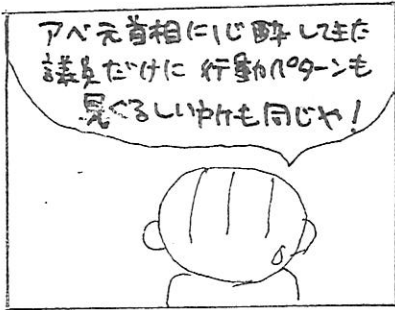 アベ元首相に心酔してきた
議員だけに行動パターンも
見ぐるしいわけも同じや!